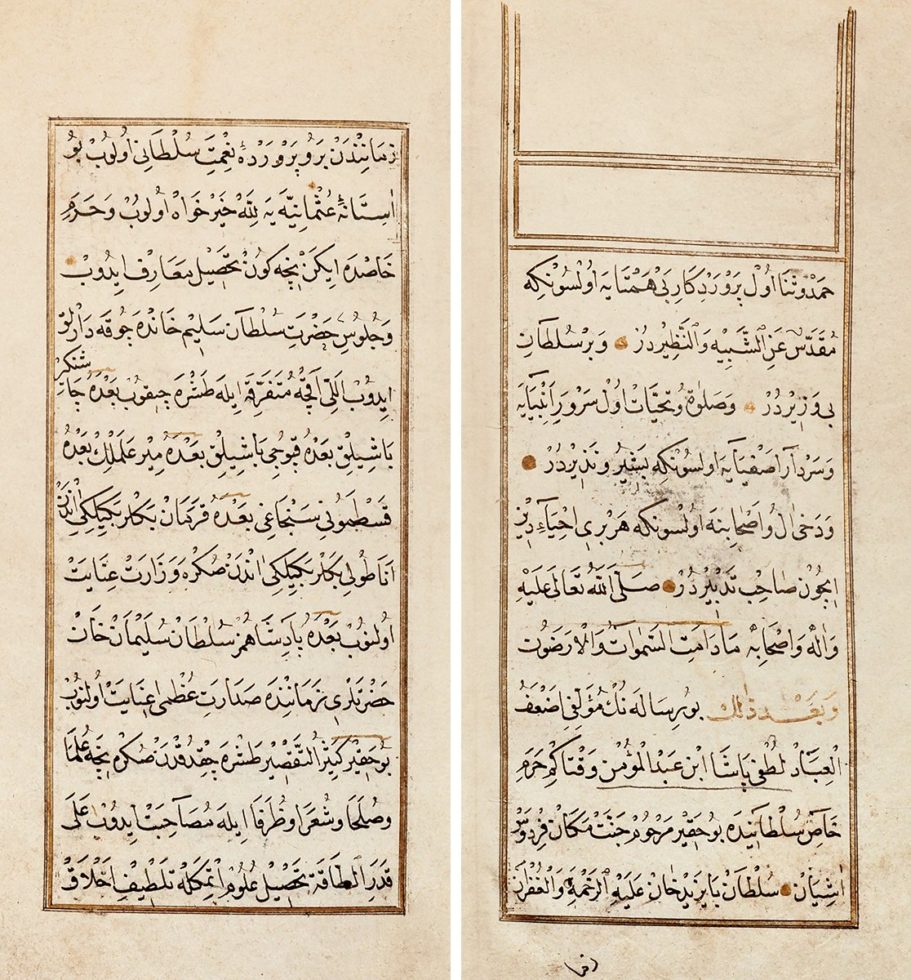 حمد وثنا اول پروردكار بی همتایه اولسونكه
مقدس عن الشبیه والنظیردر وبر سلطان
بی وزیردر وصلوة وتحیات اول سرور انبیایه
وسردار اصفیایه اولسونكه بشیر ونذیردر
ودخی ال واصحابنه اولسونكه هر بری احیاء دین
ایچون صاحب تدبیردر صلی الله تعالی علیه
واله واصحابه مادامت السموات والارضون
وبعد ذلك بو رساله نك مؤلفی اضعف
العباد لطفی پاشا ابن عبد المؤمن وقتاكم حرم
خاص سلطانیده بو حقیر مرحوم جنت مكان فردوس
اشیان سلطان بایزید خان علیه الرحمة والغفران
زمانندن برو پروردهٔ نعمت سلطانی اولوب بو
استانهٔ عثمانیه یه لله خیر خواه اولوب وحرم
خاصده ایكن نیچه كون تحصیل معارف ایدوب
وجلوس حضرت سلطان سلیم خانده چوقه دارلق
ایدوب اللی اقچه متفرقه ایله طشره چیقوب بعده چاشنكیر
باشیلق بعده قپوجی باشیلق بعده میر علملك بعده
قسطمونی سنجاغی بعده قرمان بكلربكیلكی اندن
اناطولی بكلربكیلكی اندن صكره وزارت عنایت
اولنوب بعده پادشاهمز سلطان سلیمان خان
حضرتلری زماننده صدارت عظمی عنایت اولنوب
بو حقیر كثیر التقصیر طشره چقدقدن صكره نیچه علما
وصلحا وشعرا وظرفا ایله مصاحبت ایدوب علی
قدر الطاقة تحصیل علوم اتمكله تلطیف اخلاق